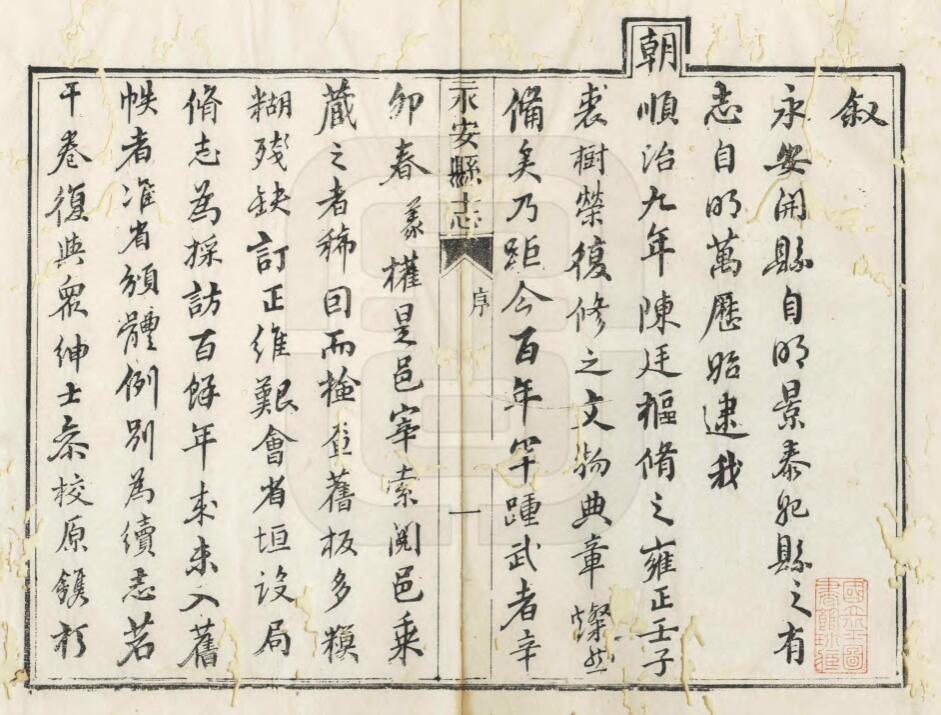 叙
永安開縣自明景泰始縣之有
志自明萬歷始逮我
朝
順治九年陳廷樞脩之雍正壬子
裘樹榮復修之文物典章燦然
備矣乃距今百年罕踵武者辛
永安縣志
序
一
卯春義權是邑宰索閱邑乘
藏之者稀因而檢查舊板多糢
糊殘缺訂正維艱會省垣設局
脩志為採訪百餘年来未入舊
帙者准省頒體例別為續志若
干卷復與衆紳士叅校原鐫